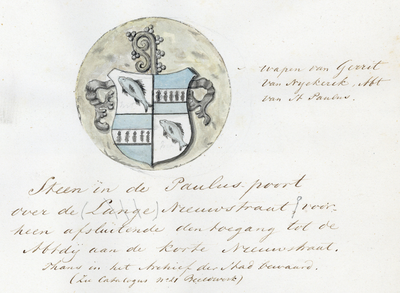 wapen van Gerrit
van Nyekerck, Abt
van St Paulus.
Steen in de Paulus-poort
over de (Lange) Nieuwstraat, voor-
heen afsluitende den toegang tot de
Abtdij aan de korte Nieuwstraat.
Thans in het Archief der Stad bewaard.
(zie Catalogus no 21 Beeldwerk)